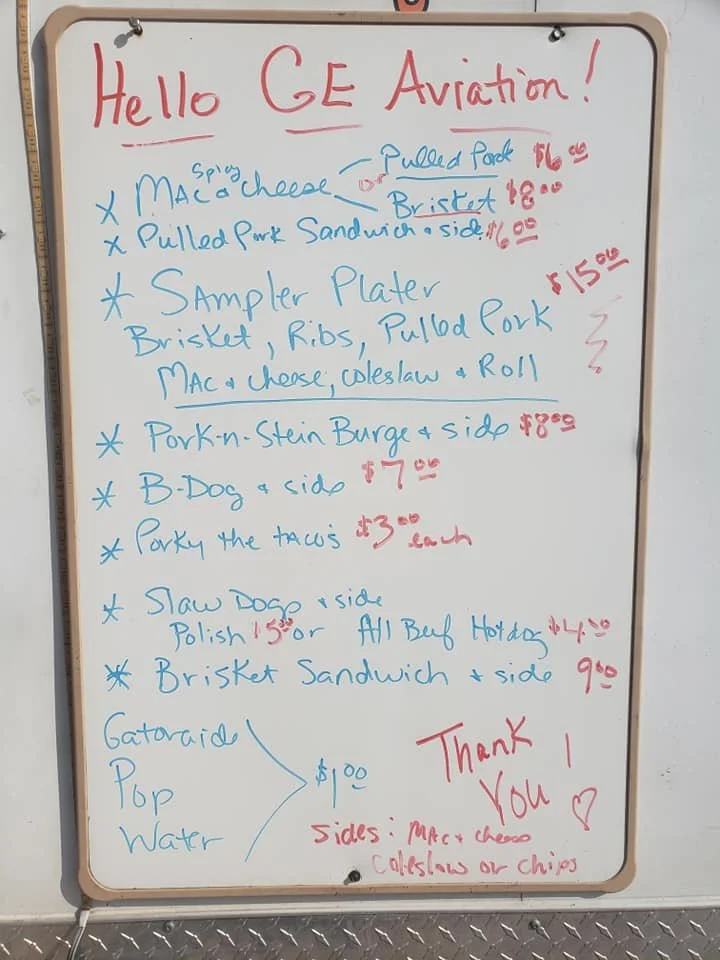 Hello GE Aviation!
x Mac & cheese Spicy or Pulled Pork $6.00
Brisket $8.00
x Pulled Pork Sandwich & side $6.00
* Sampler Plater $15.00
Brisket, Ribs, Pulled Pork
Mac & cheese, coleslaw & Roll
* Pork-n-Stein Burge & side $8.00
* B-Dog & side $7.00
* Porky the taco's $3.00 each
* Slaw Dogs & side
Polish $5.00 or All Beef Hotdog $4.00
* Brisket Sandwich & side 9.00
Gatoraide
Pop $1.00
Water
Thank You!
sides: Mac & cheese
Coleslaw or chips